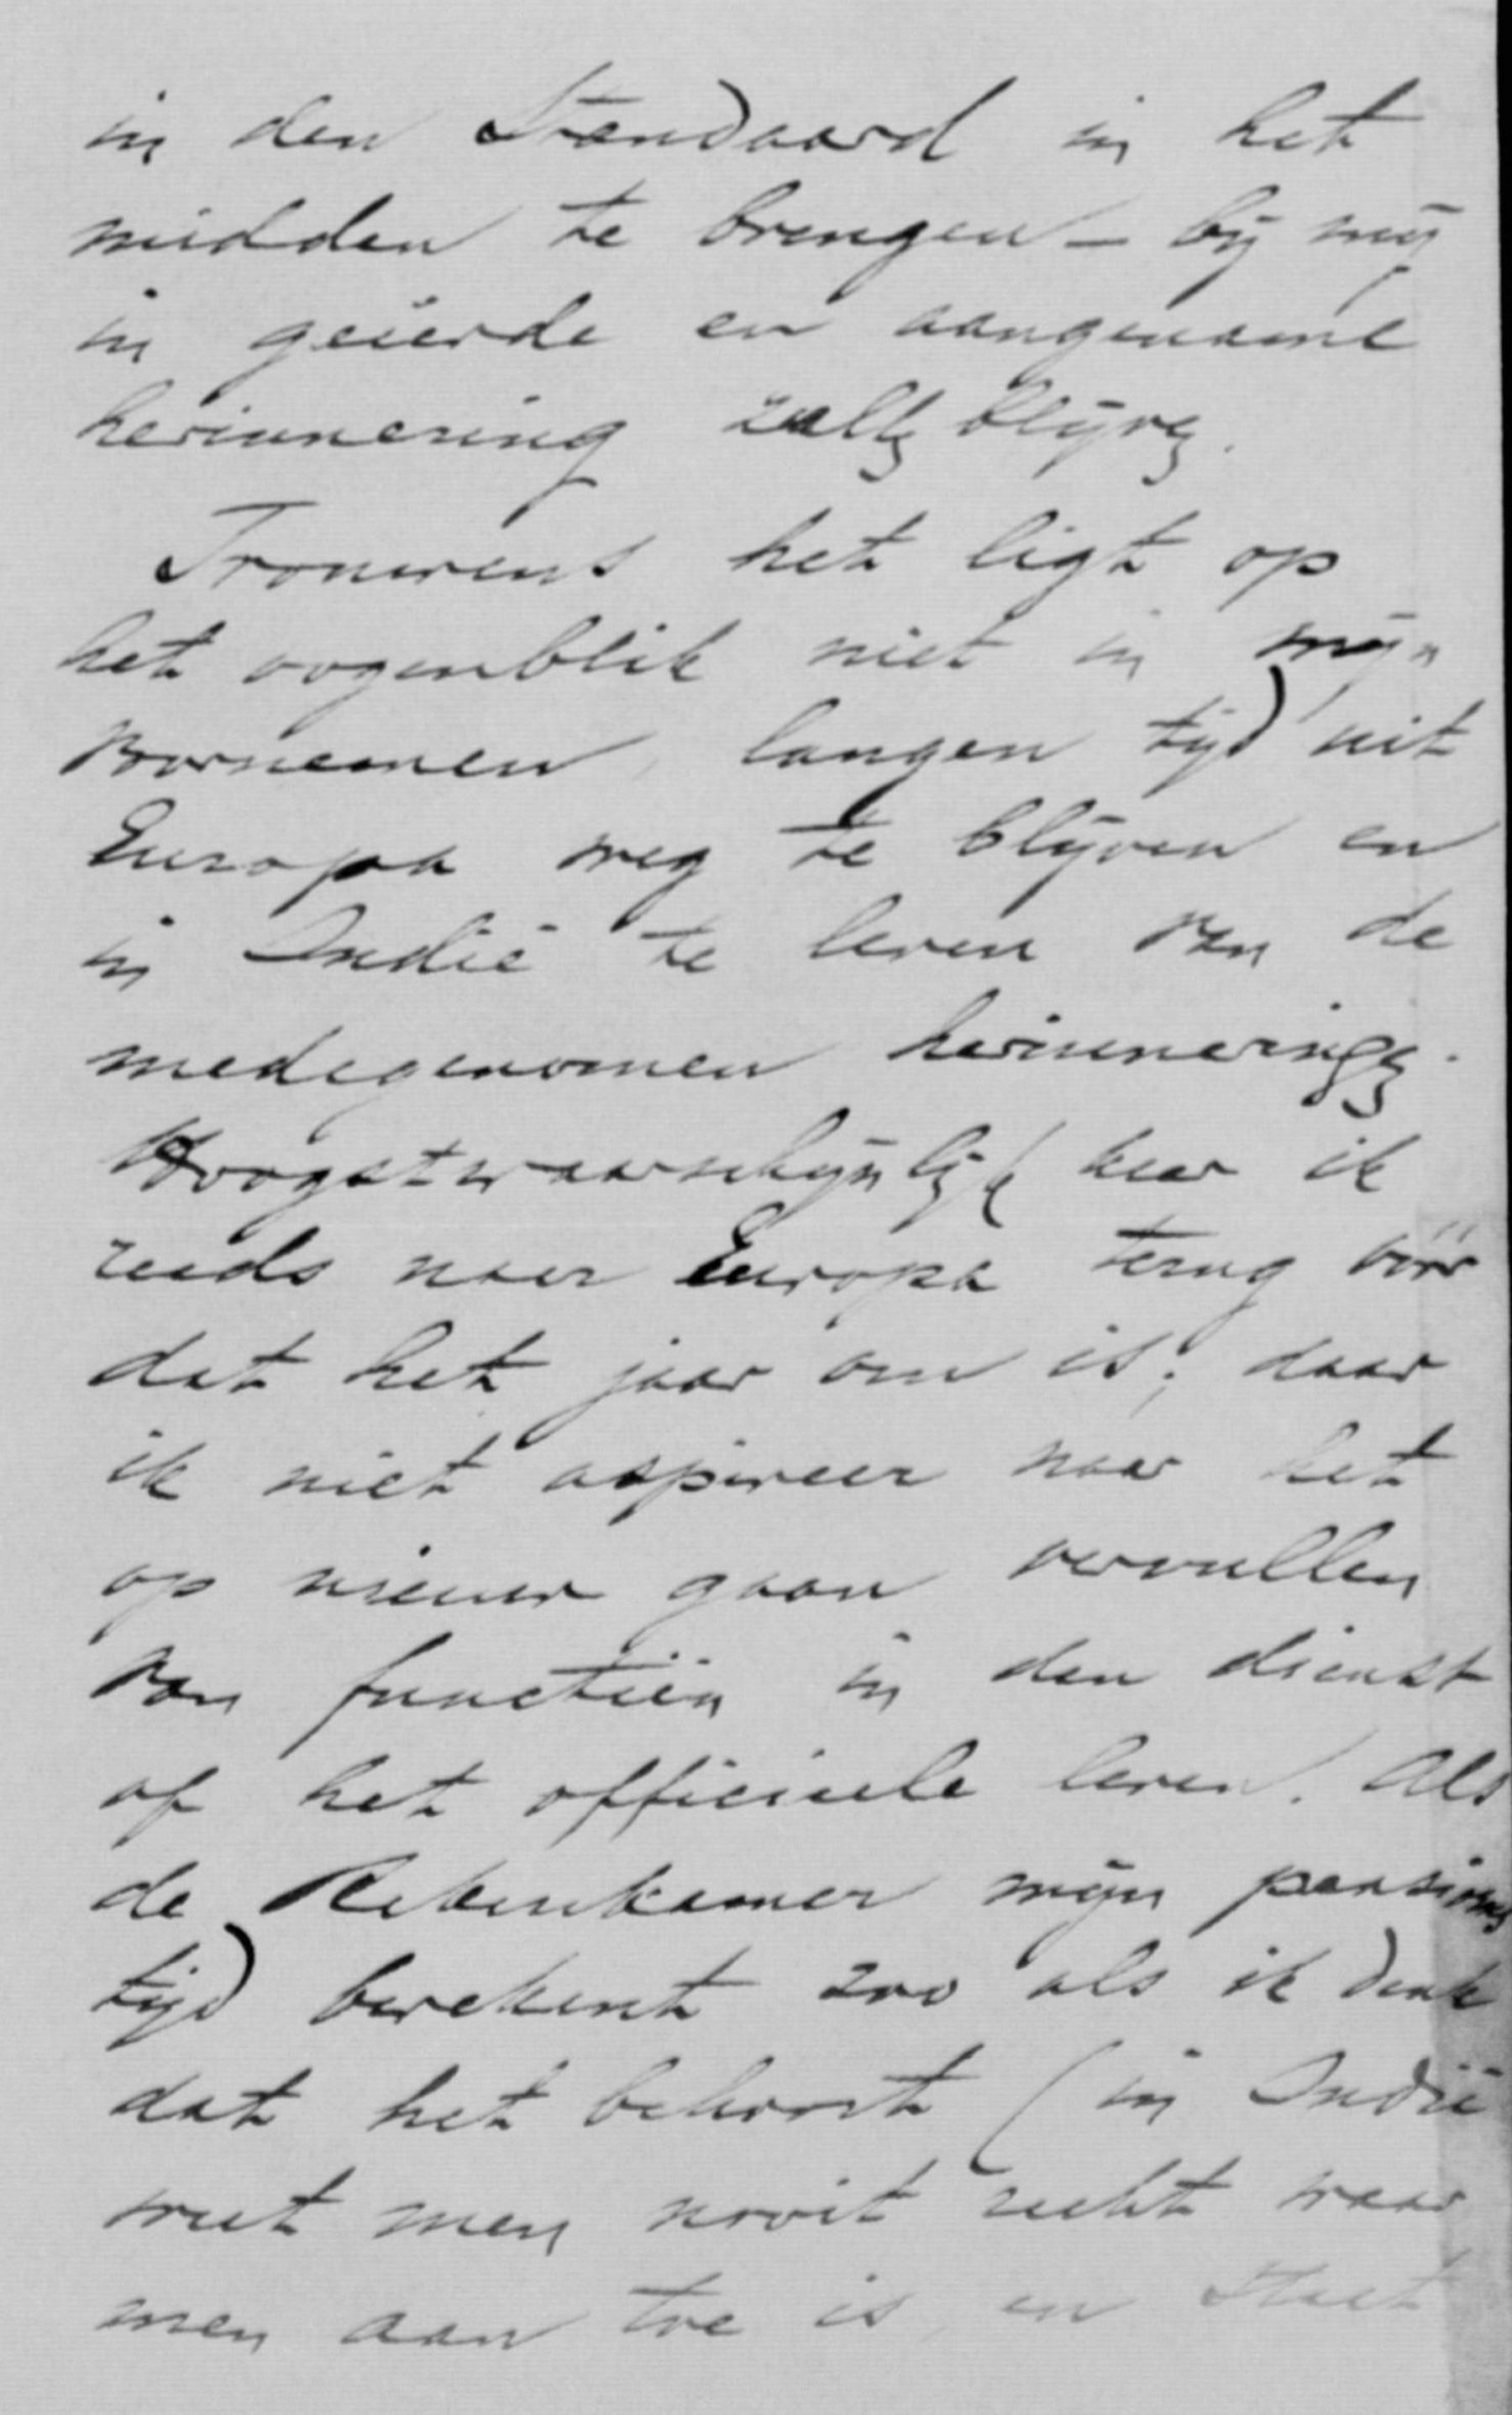 in den Standaard in het
midden te brengen – bij mij
in geëerde en aangename
herinnering zulle blijven.
Trouwens het ligt op
het oogenblik niet in mijn
voornemen, langen tijd uit
Europa weg te blijven en
in Indië te leven van de
medegenomen herinneringen.
Hoogstwaarschijnlijk keer ik
reeds naar Europa terug vóór
dat het jaar om is; daar
ik niet aspireer naar het
op nieuw gaan vervullen
van functiën in den dienst
of het officieele leven. Als
de Rekenkamer mijn pensioens
tijd berekent zoo als ik denk
dat het behoort (in Indië
weet men nooit recht waar
men aan toe is, en stuit